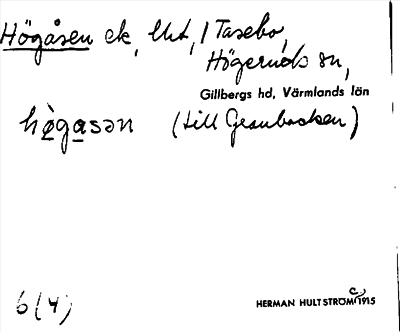 Högåsen ek, Utt, / Tasebo,
Högeruds sn,
Gillbergs hd, Värmlands län
hø̀gasən (till Granbacken)
6(4)
HERMAN HULTSTRÖM C. 1915